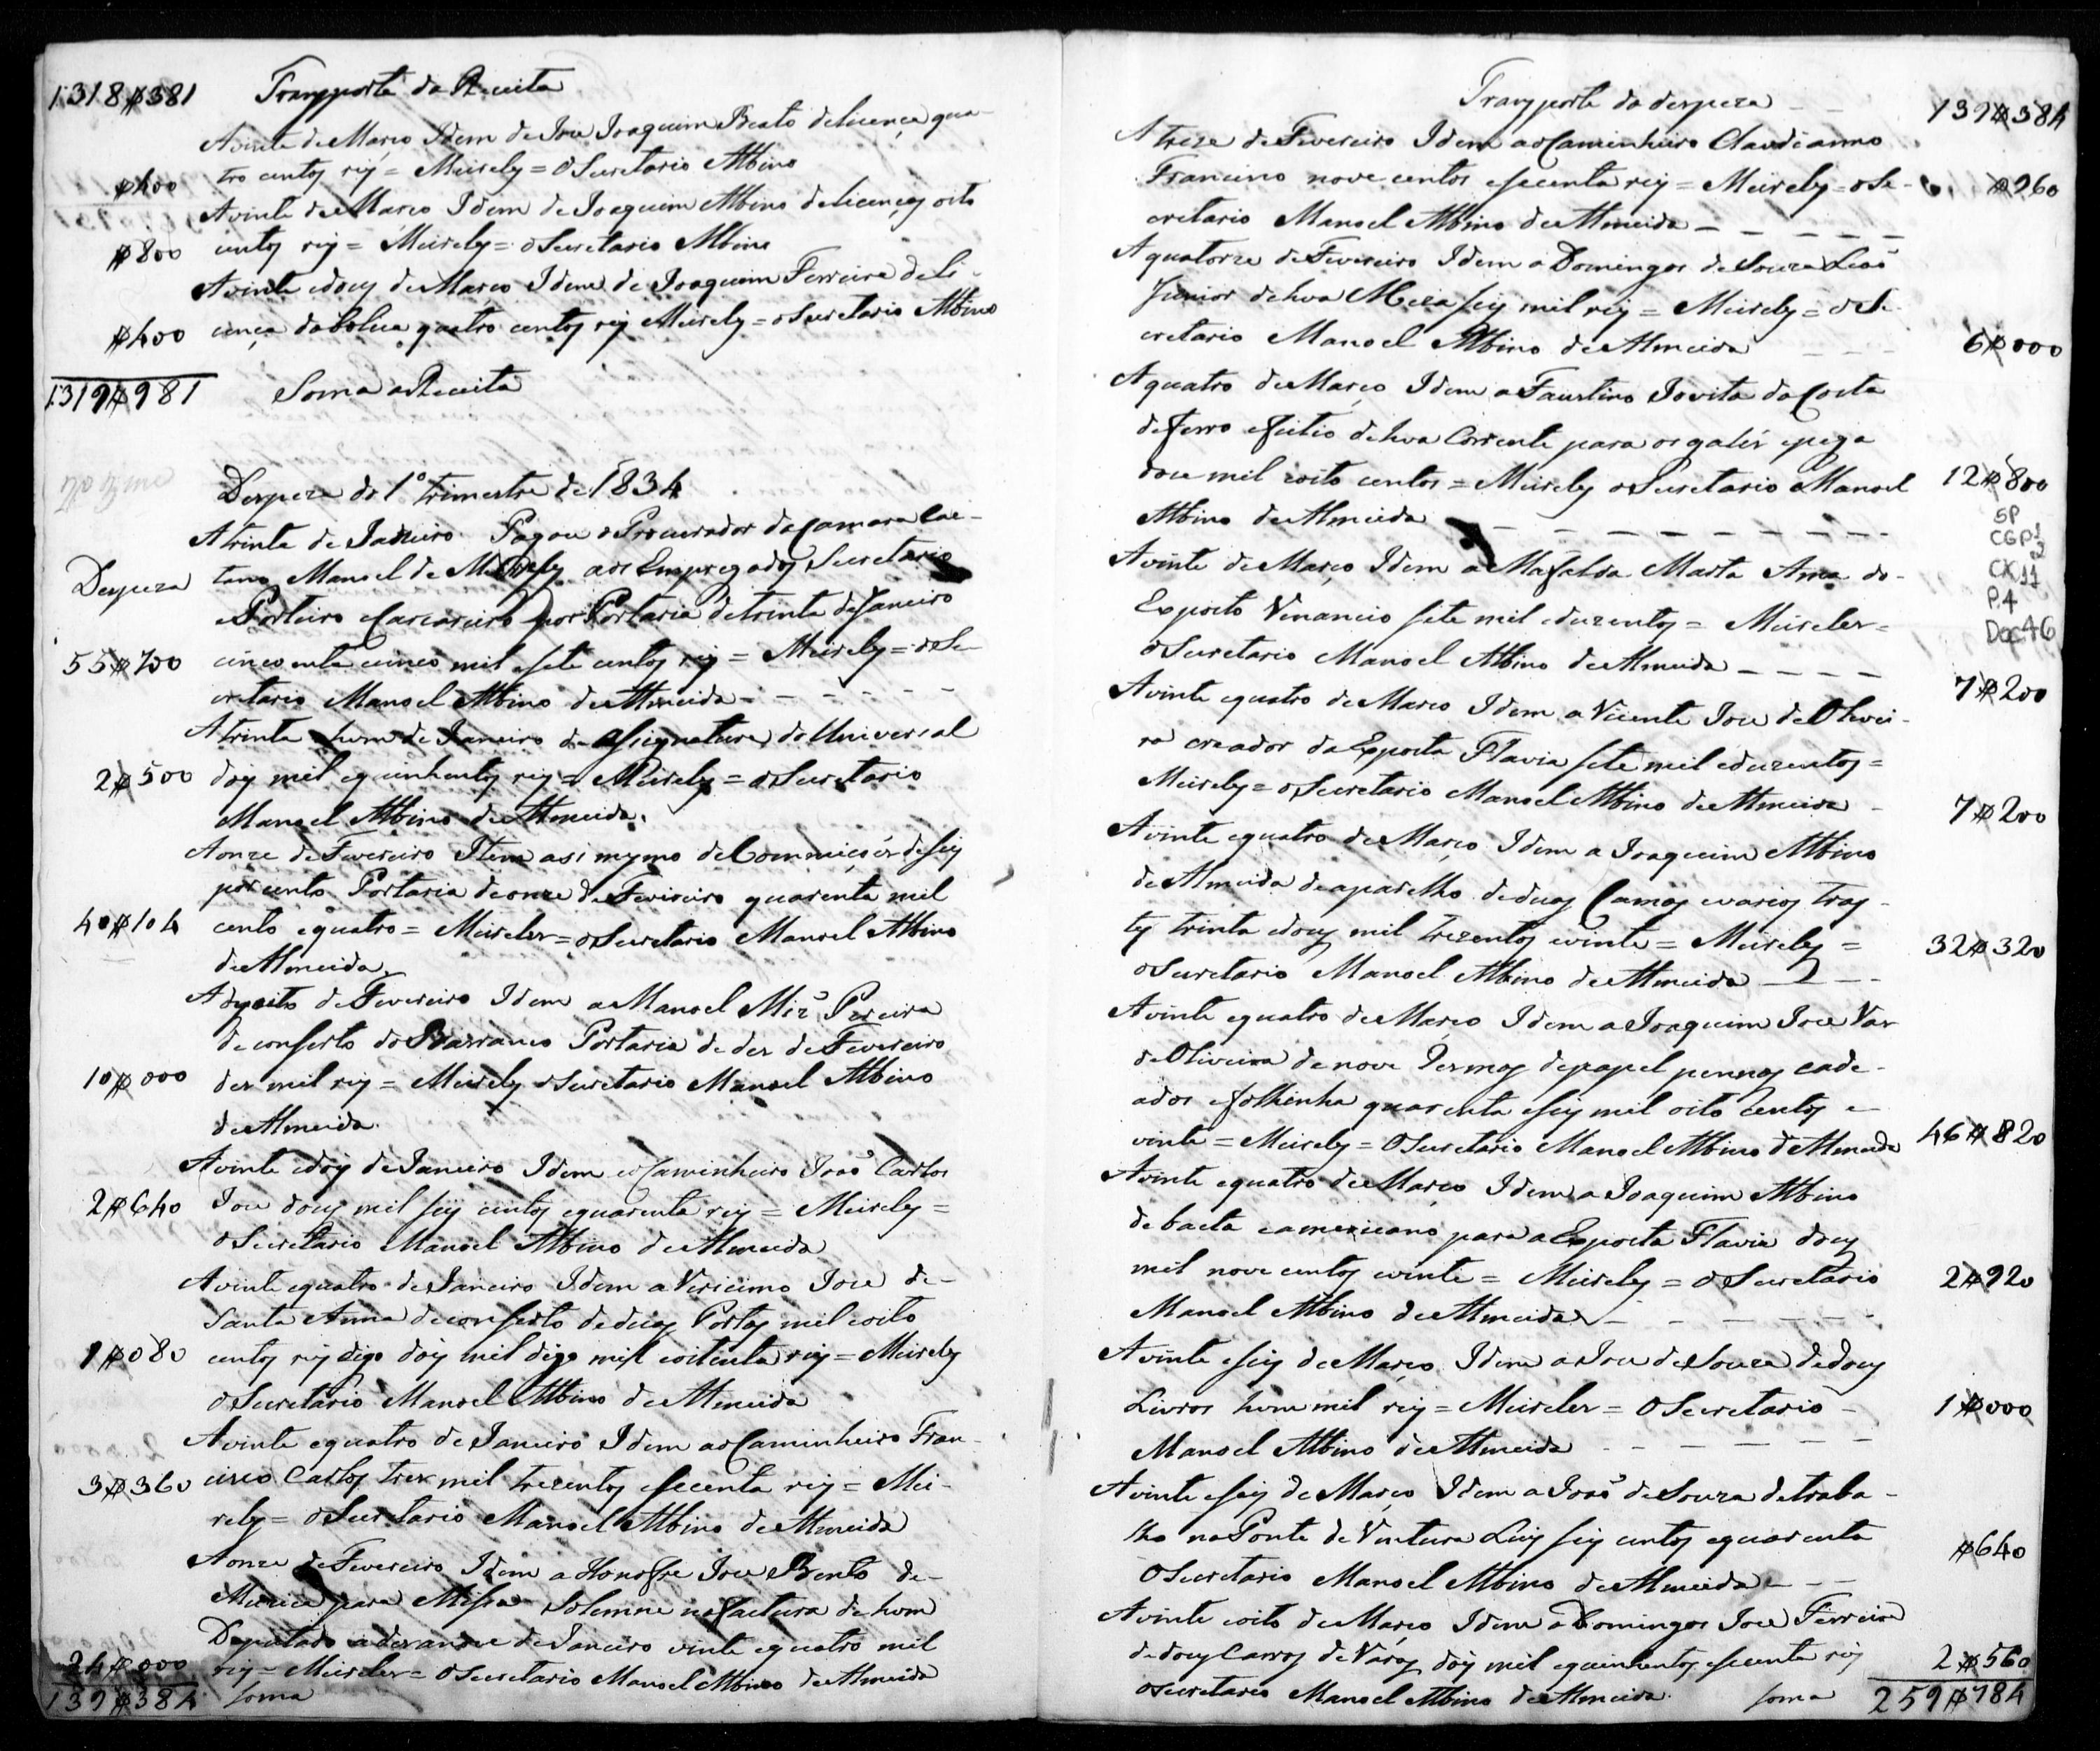 1:318$381 Transporte da Receita
A vinte de Março Idem de Joze Joaquim Beato de licença qua-
$400 tro centos reis = Meireles = O Secretario Albino
A vinte de Março Idem de Joaquim Albino de licenças oito
$800 centos reis = Meireles = o Secretario Albino
A vinte e dous de Março Idem de Joaquim Ferreira de li-
$400 cença quatro centos reis Meireles = o Secretario Albino
1:319$981 Soma a Receita
Despeza do 1º trimestre de 1834
A trinta de Janeiro Pagou o Procurador da Camara Cae-
Despeza tano Manoel de Meireles aos Empregados Secretario
e Porteiro e Carcareiro por Portaria de trinta de Janeiro
55$700 cincoenta e cinco mil e sete centos reis = Meireles = o Se-
cretario Manoel Albino de Almeida
A trinta e hum de Janeiro de asignatura do Universal
2$500 dois mil e quinhentos reis = Meireles = o Secretario
Manoel Albino de Almeida.
A onze de Fevereiro Item asi mesmo de Commições de seis
por cento Portaria de onze de Fevereiro quarenta mil
40$104 cento e quatro = Meireles = o Secretario Manoel Albino
de Almeida.
A dezoito de Fevereiro Idem a Manoel Miz Pereira
de conserto do Barranco Portaria de dez de Fevereiro
10$000 dez mil reis = Meireles o Secretario Manoel Albino
de Almeida.
A vinte e dois de Janeiro Idem ao Caminheiro João Carlos
2$640 Joze dous mil seis centos e quarenta reis = Meireles =
o Secretario Manoel Albino de Almeida
A vinte e quatro de Janeiro Idem a Vericimo Joze de
Santa Anna de conserto de duas Portas mil e oito
1$080 centos reis digo dois mil digo mil e oitenta reis = Meireles
o Secretario Manoel Albino de Almeida
A vinte e quatro de Janeiro Idem ao Caminheiro Fran-
3$360 cisco Carlos trez mil trezentos e secenta reis = Mei-
reles = o Secretario Manoel Albino de Almeida
A onze de Fevereiro Idem a Honofre Joze Bento de
Muzica para Missa Solemne na factura de hum
Deputado a dezanove de Janeiro vinte e quatro mil
24$000 reis = Meireles = O Secretario Manoel Albino de Almeida
139$384 Soma
Transporte da despeza 139$384
A treze de Fevereiro Idem ao Caminheiro Claudeanno
Francino nove centos e secenta reis = Meireles = o Se- $960
cretario Manoel Albino de Almeida
A quatorze de Fevereiro Idem a Domingos de Souza Leão
Junior de hua Meza seis mil reis = Meireles = o Se-
cretario Manoel Albino de Almeida 6$000
A quatro de Março Idem a Faustino Jovita da Costa
de ferro e feitio de hua Corrente para os galés e pega
doze mil e oito centos = Meireles o Secretario Manoel 12$800
Albino de Almeida
SP
CGP1
CX 11
P.4
Doc 46
A vinte de Março Idem a Mafalda Marta Ama do
Exposto Venancio sete mil e duzentos = Meireles =
o Secretario Manoel Albino de Almeida 7$200
A vinte e quatro de Março Idem a Vicente Joze de Olivei-
ra creador da Exposta Flavia sete mil e duzentos =
Meireles = o Secretario Manoel Albino de Almeida 7$200
A vinte e quatro de Março Idem a Joaquim Albino
de Almeida de aparelho de duas Camas e varios tras-
tes trinta e dous mil trezentos e vinte = Meireles = 32$320
o Secretario Manoel Albino de Almeida
A vinte e quatro de Março Idem a Joaquim Joze Vaz
de Oliveira de nove Resmas de papel pennas cade-
ados e folhinha quarenta e seis mil oito centos e
vinte = Meireles = O Secretario Manoel Albino de Almeida 46$820
A vinte e quatro de Março Idem a Joaquim Albino
de baeta e americano para a Exposta Flavia dous
mil nove centos e vinte = Meireles = o Secretario 2$920
Manoel Albino de Almeida
A vinte e seis de Março Idem a Joze de Souza de dous
Livros hum mil reis = Meireles = O Secretario 1$000
Manoel Albino de Almeida
A vinte e seis de Março Idem a João de Souza de traba-
lho na Ponte de Ventura Luis seis centos e quarenta $640
O Secretario Manoel Albino de Almeida
A vinte e oito de Março Idem a Domingos Joze Ferreira
de dous Carros de Varas dois mil e quinhentos e secenta reis 2$560
o Secretario Manoel Albino de Almeida. Soma 259$784